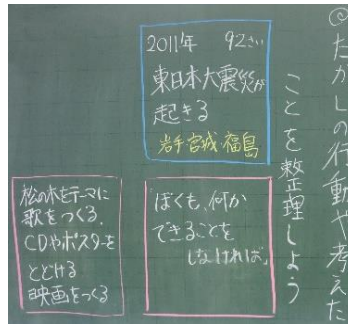 ◎たかしの行動や考えた
ことを整理しよう
2011年 92さい
東日本大震災が
起きる
岩手・宮城・福島
ぼくも、何か
できることを
しなければ。
松の木をテーマに
歌をつくる。
CDやポスターを
とどける
映画をつくる